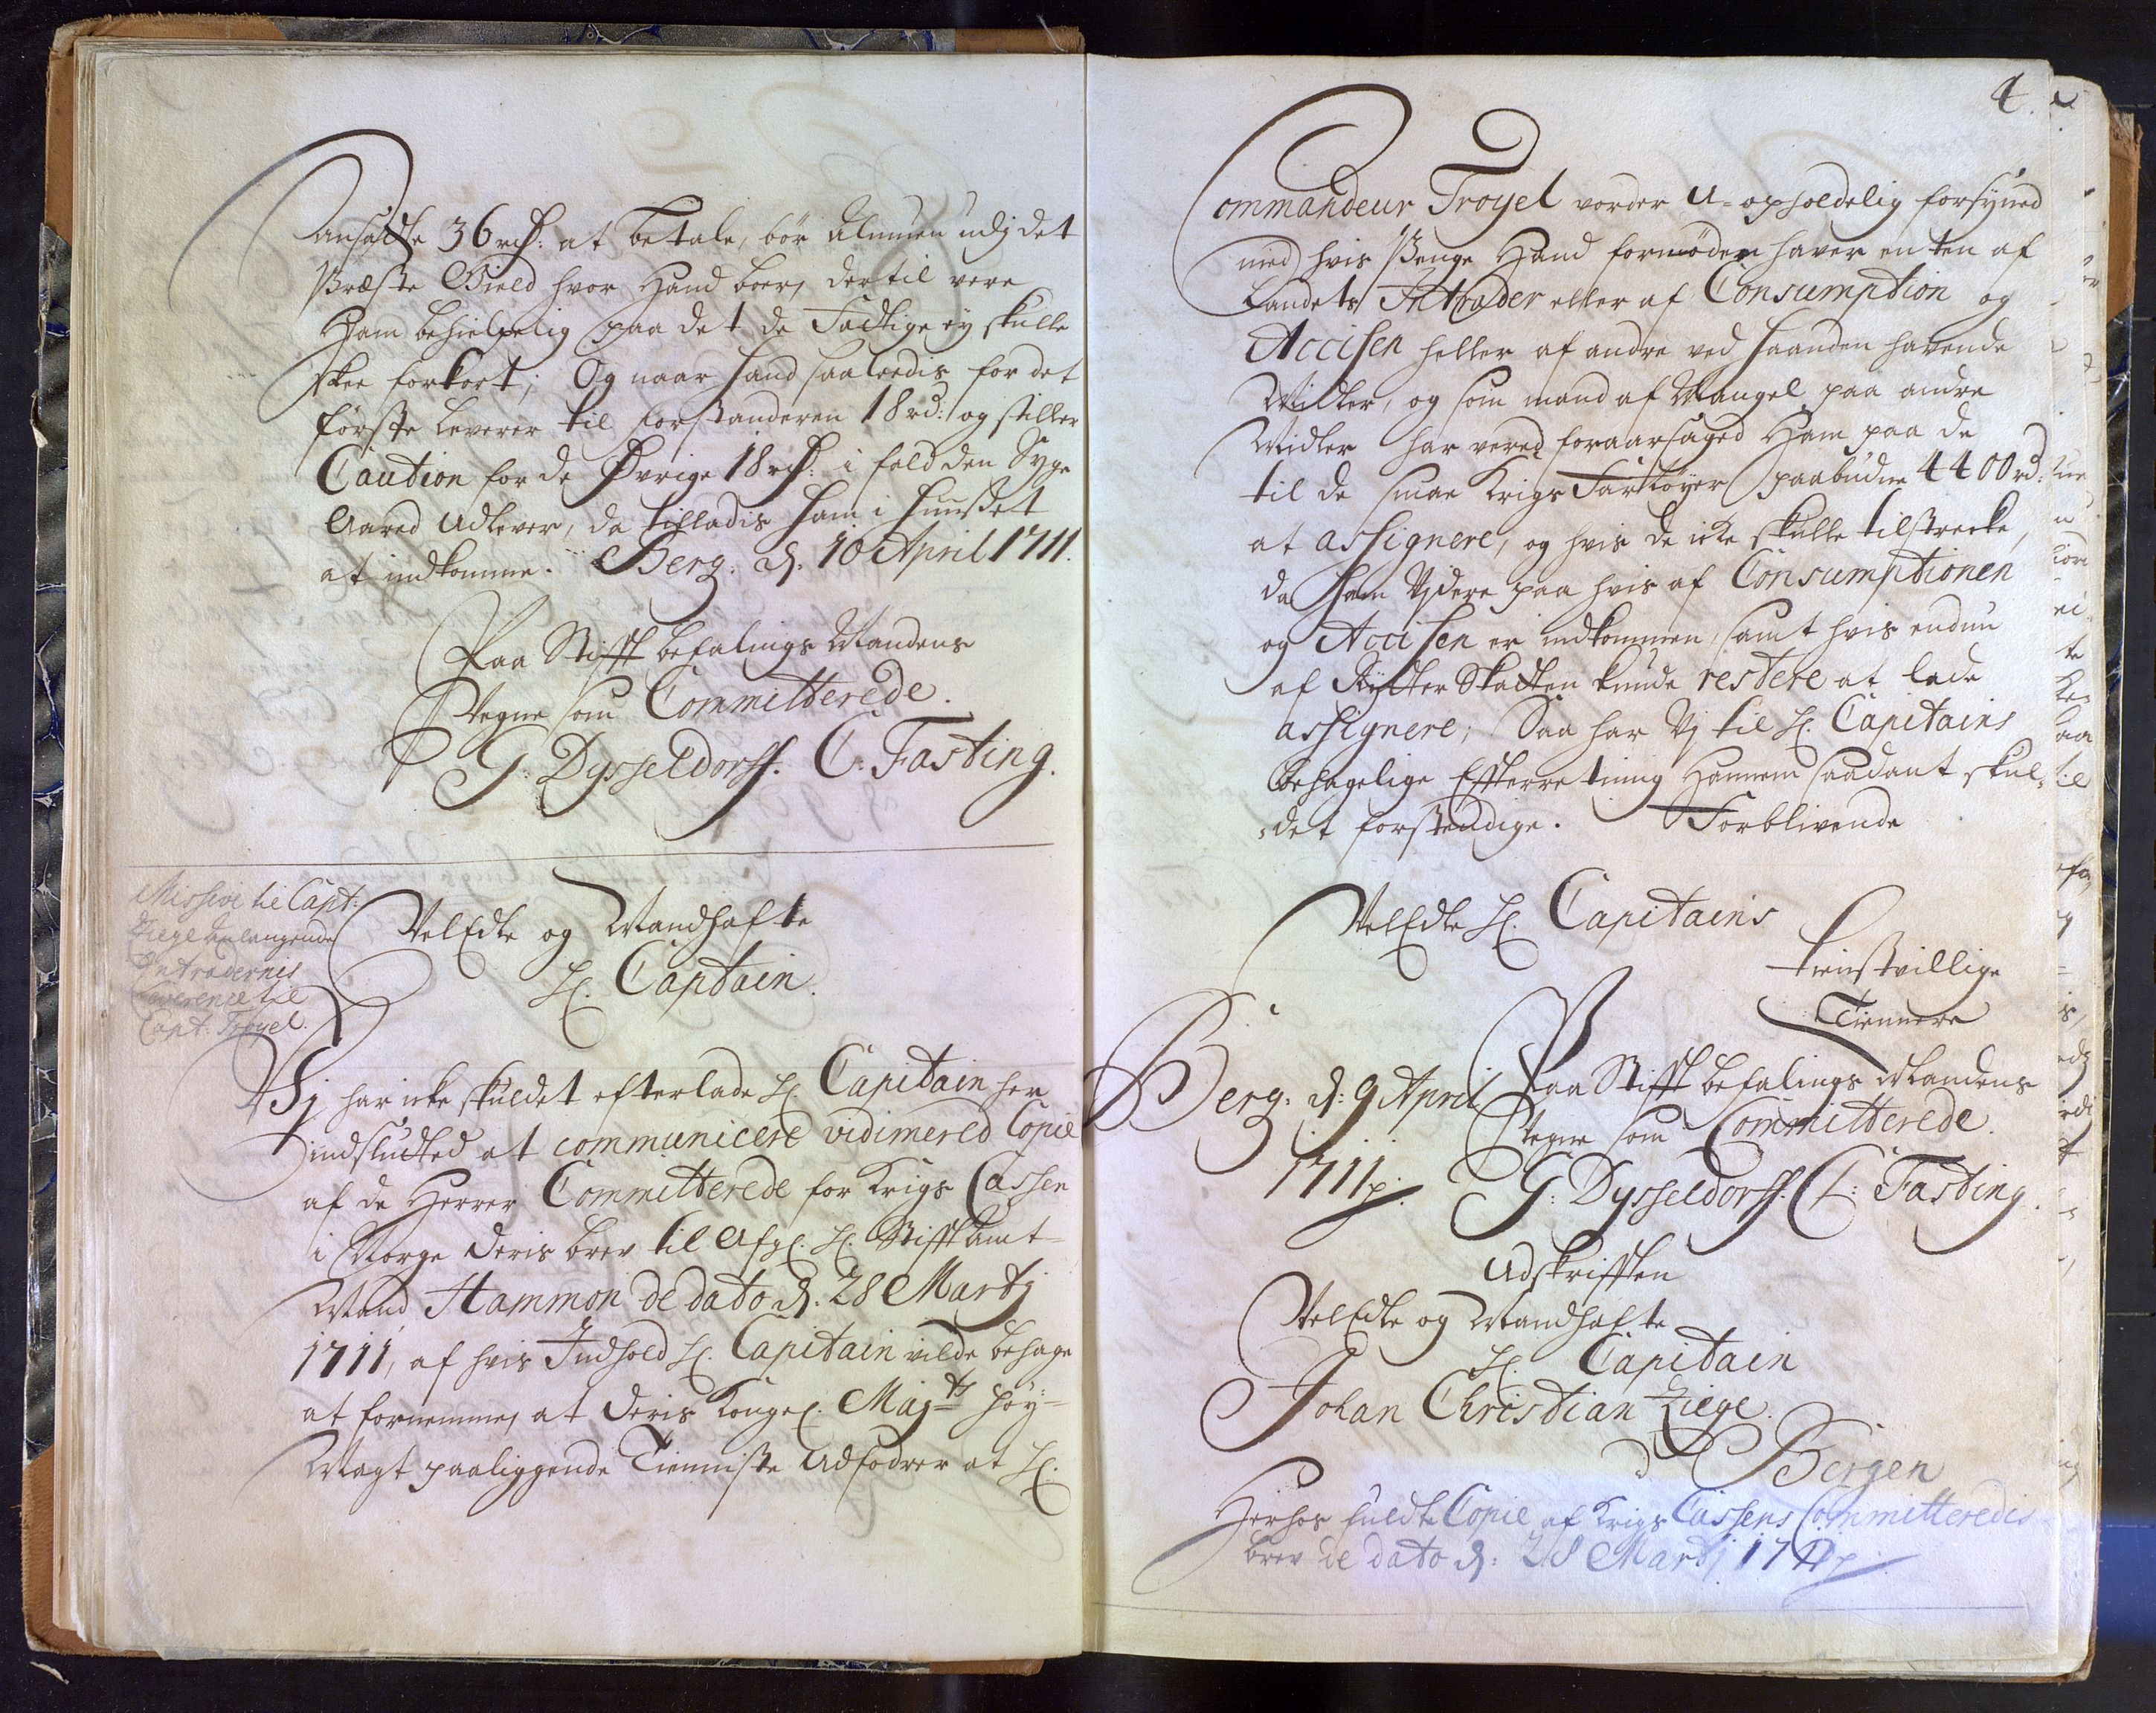 ansatte 36 rd: at betale, bör Almuen udj det
Præste Gield hvor Hand boer, dertil vere
Ham behielpelig paa det de Fattige ey skulle
skee forkort; Og naar hand saaledis for det
förste leverer til forstanderen 18 rd: og stiller
Caution for de Øvrige 18 rd: i fald den Syge
Aared udlever, da tilladis ham i Huuset
at indkomme. Berg: d. 10 April 1711.
Paa Stifft befalings Mandens
Vegne som Committerede.
G: Dysseldorff. C: Fasting.
Missive til Capt:
Ziege anlangende
Intradernis
Leverence til
Capt. Troyel.
VelEdle og Mandhafte
H. Captain.
Vj har icke skuldet efterlade H. Capitain her
indslutted at communicere vidimered Copie
af de Herrer Committerede for Krigs Cassen
i Norge deris brev til Afg. H. Stifft Amt-
Mand Hammon de dato d. 28 Martj
1711, af hvis Indhold H. Capitain vilde behage
at fornemme, at deris Kongel. Maj:ts höy-
Magt paaliggende Tienniste udfodrer at H.
4.
Commandeur Troyel vorder U-opholdelig forsyned
med hvis Penge Hand formöden haver enten af
Landets Intrader eller af Consumption og
Accisen heller af andre ved haanden havende
Midler, og som mand af Mangel paa andre
Midler har vered foraarsaged Ham paa de
til de smae Krigs Fartöyer paabudne 4400 rd:
at assignere, og hvis de icke skulle tilstrecke,
da Ham Vjdere paa hvis af Consumptionen
og Accisen er indkommen, samt hvis endnu
af Rytter Skatten kunde restere at lade
assignere; Saa har Vj til H. Capitains
behagelige Effterretning Hannem saadant skul-
-det forstendige. Forblivende
VelEdle H. Capitains
tienstvillige
Tiennere
Berg: d: 9 April
1711 p.
Paa Stifft befalings Mandens
Vegne som Committerede.
G: Dysseldorff. C: Fasting.
Udskrifften
VelEdle og Mandhafte
H. Capitain
Johan Christian Ziege.
Bergen
Herhos fuldte Copie af Krigs Cassens Committeredis
brev de dato d: 28 Martj 1711 p.